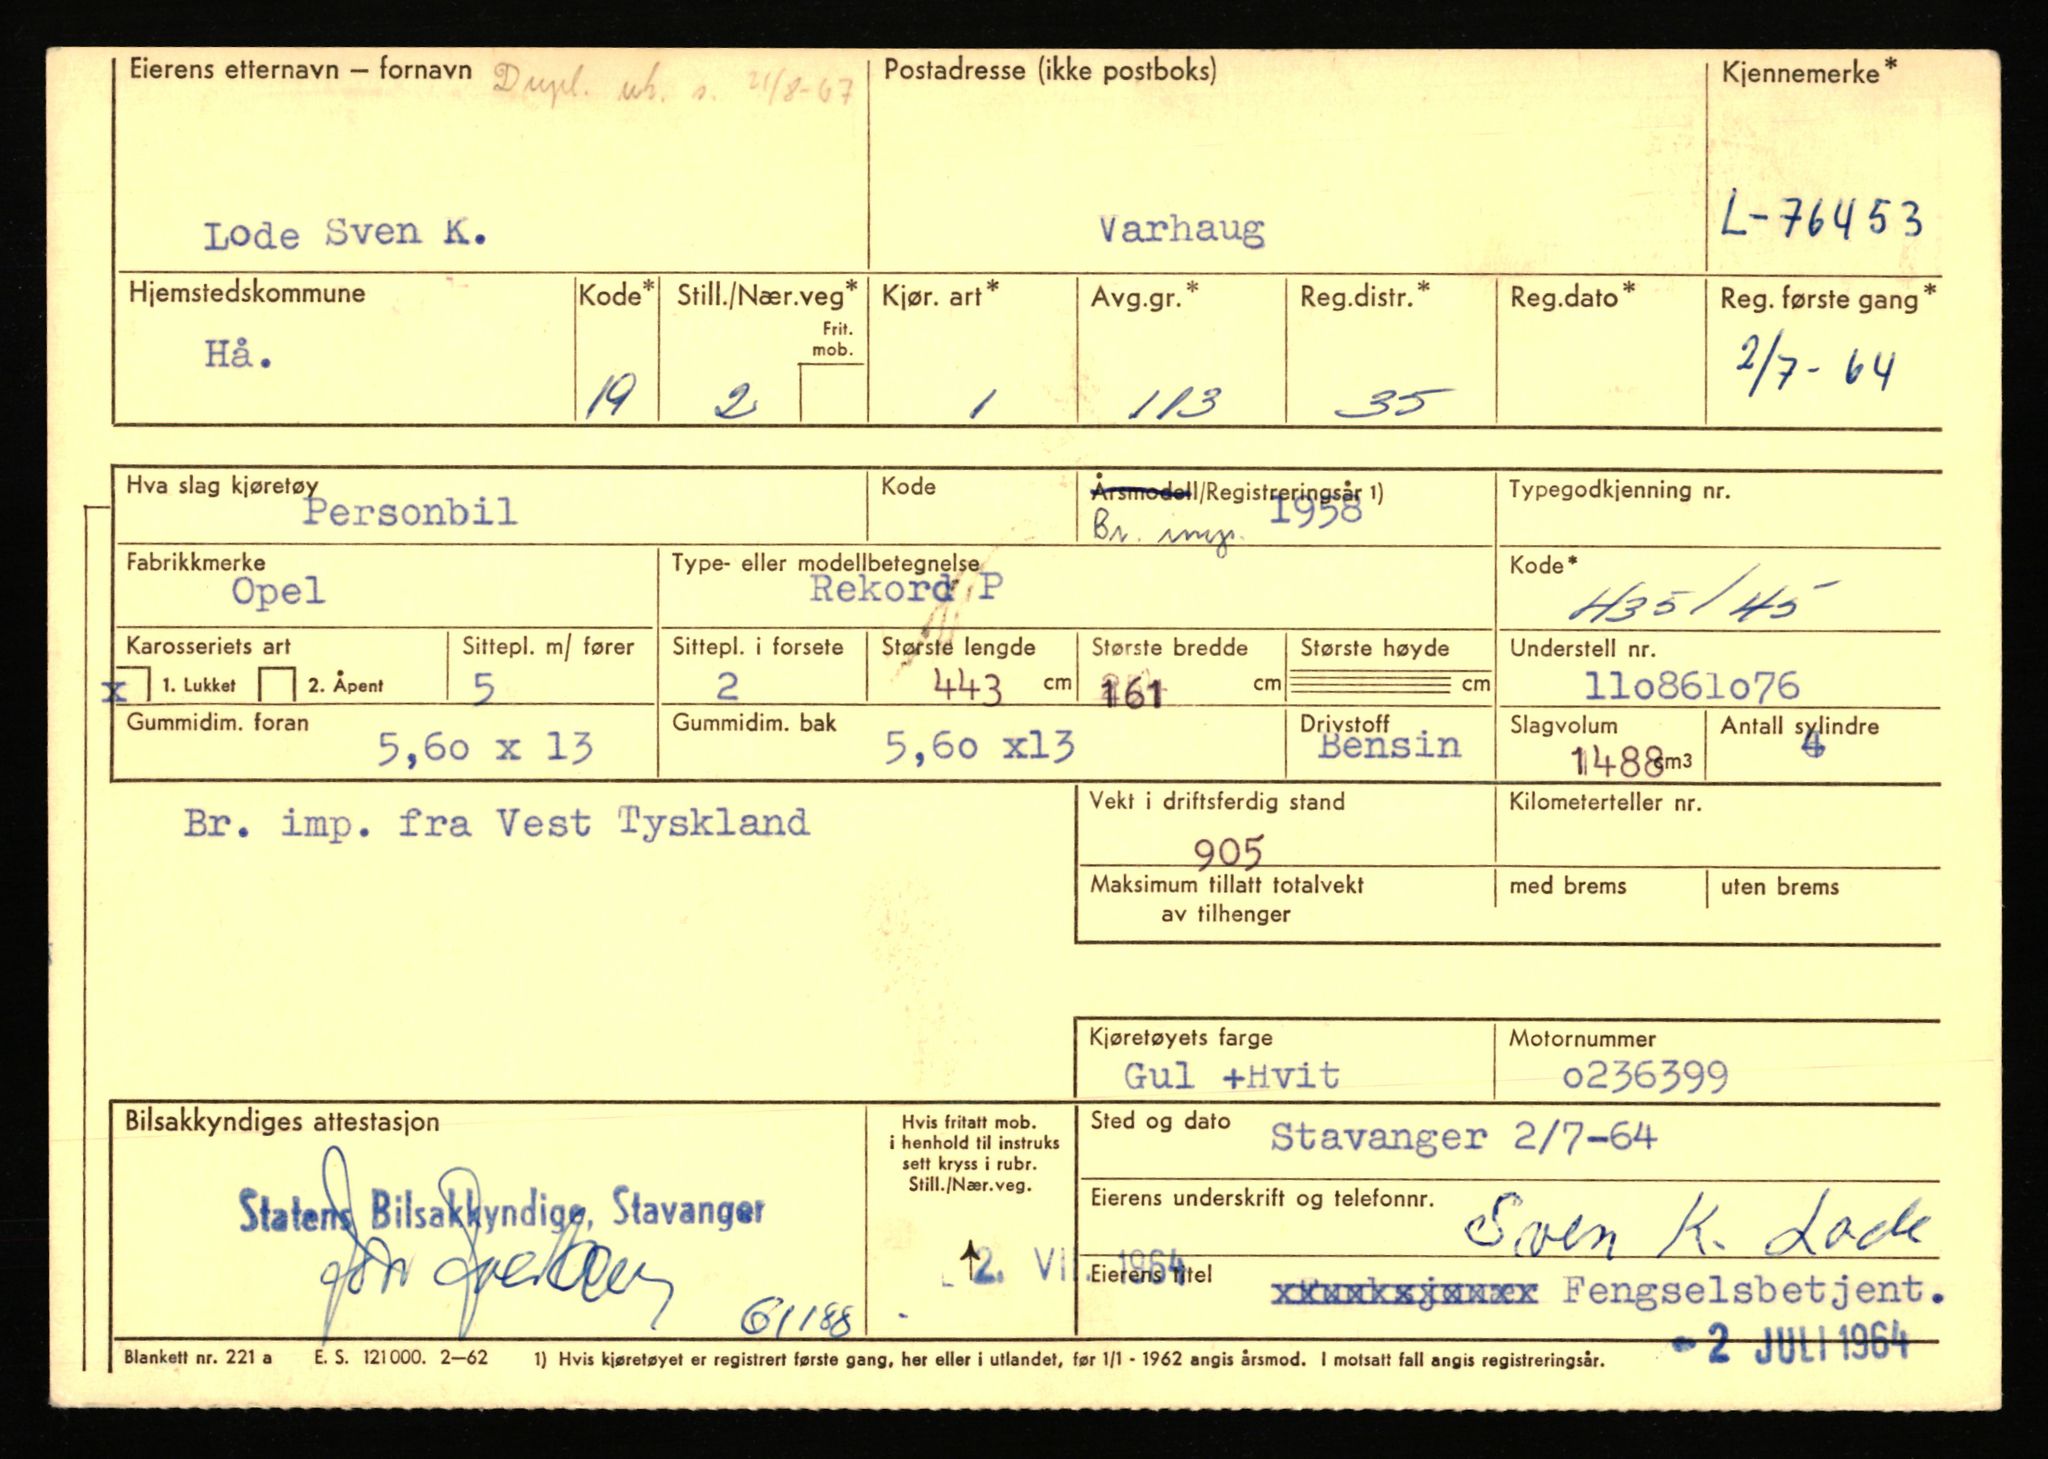 Eierens etternavn – fornavn Dupl. utst. 21/8-67 Postadresse (ikke postboks) Kjennemerke*
Lode Sven K. Varhaug L-76453
Hjemstedskommune Kode* Still./Nær.veg* Kjør. art* Avg.gr.* Reg.distr.* Reg.dato* Reg. første gang*
Frit.
mob.
Hå. 19 2 1 113 35 2/7-64
Hva slag kjøretøy Kode Årsmodell/Registreringsår 1) Typegodkjenning nr.
Personbil Br. imp. 1958
Fabrikkmerke Type- eller modellbetegnelse Kode*
Opel Rekord P 435/45
Karosseriets art Sittepl. m/ fører Sittepl. i forsete Største lengde Største bredde Største høyde Understell nr.
x 1. Lukket 2. Åpent 5 2 443 cm 161 cm cm 11o861o76
Gummidim. foran Gummidim. bak Drivstoff Slagvolum Antall sylindre
5,6o x 13 5,6o x13 Bensin 1488 cm3 4
Br. imp. fra Vest Tyskland
Vekt i driftsferdig stand Kilometerteller nr.
905
Maksimum tillatt totalvekt med brems uten brems
av tilhenger
Kjøretøyets farge Motornummer
Gul +Hvit o236399
Bilsakkyndiges attestasjon
Hvis fritatt mob.
i henhold til instruks
sett kryss i rubr.
Still./Nær.veg.
Sted og dato Stavanger 2/7-64
Statens Bilsakkyndige, Stavanger
Eierens underskrift og telefonnr. Sven K. Lode
2. VII. 1964
Eierens titel Fengselsbetjent.
61188
- 2 JULI 1964
Blankett nr. 221 a E. S. 121000. 2–62 1) Hvis kjøretøyet er registrert første gang, her eller i utlandet, før 1/1 - 1962 angis årsmod. I motsatt fall angis registreringsår.